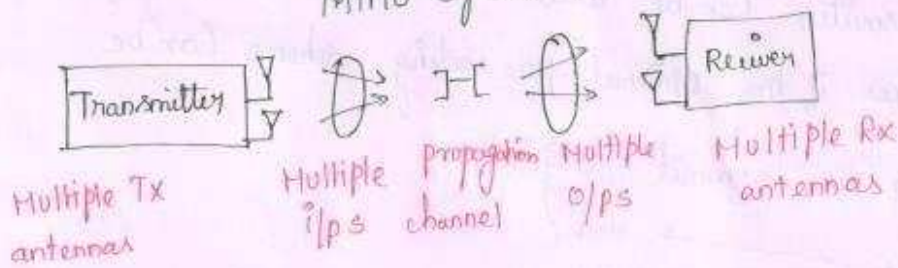 MIMO
Transmitter
Reciver
Multiple Tx
antennas
Multiple
i/ps
propagation
channel
Multiple
o/ps
Multiple Rx
antennas